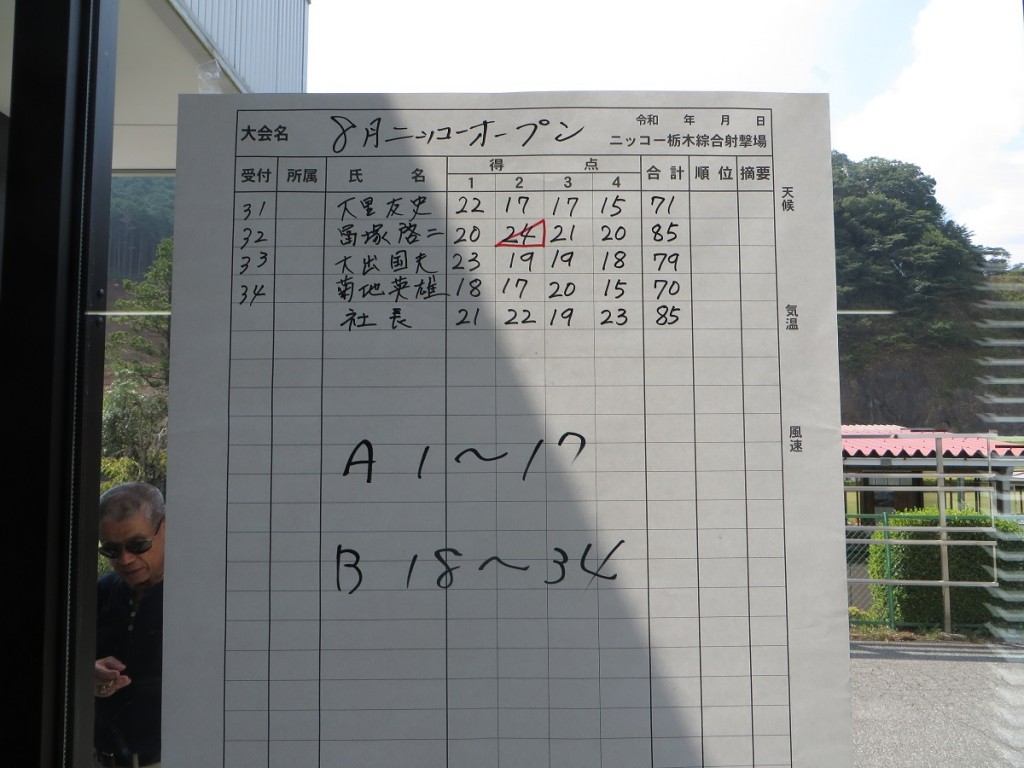 令和 年 月 日
大会名 8月ニッコーオープン ニッコー栃木綜合射撃場
受付 所属 氏 名 得 点 合計 順位 摘要
1 2 3 4
天候
31 大里友史 22 17 17 15 71
32 冨塚啓二 20 24 21 20 85
33 大出国夫 23 19 19 18 79
34 菊地英雄 18 17 20 15 70
社長 21 22 19 23 85
気温
風速
A 1〜17
B 18〜34